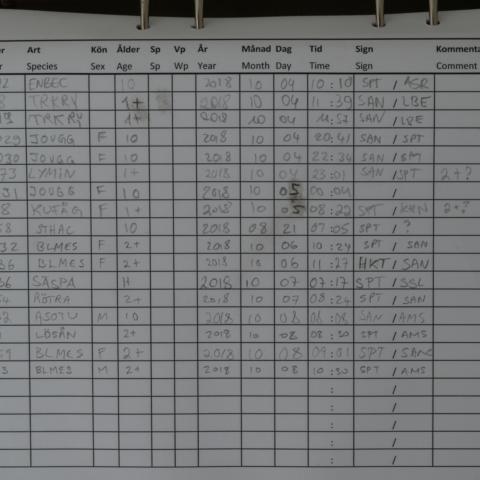 er Art Kön Ålder Sp Vp År Månad Dag Tid Sign Kommenta
r Species Sex Age Sp Wp Year Month Day Time Sign Comment
92 ENBEC 10 2018 10 04 10:10 SPT / ASR
8 TRKRY 1+ 2018 10 04 11:39 SAN / LBE
19 TRKRY 1+ 2018 10 04 11:52 SAN / LBE
029 JOUGG F 10 2018 10 04 20:41 SAN / SPT
030 JOUGG F 10 2018 10 04 22:34 SAN / SPT
73 LYMIN 1+ 2018 10 04 23:01 SAN / SPT 2+?
31 JOUGG F 10 2018 10 05 00:04 /
8 KUFÅG F 1+ 2018 10 05 08:22 SPT / KHN 2+?
58 STHAC 10 2018 08 21 07:05 SPT / ?
32 BLMES F 2+ 2018 10 06 10:24 SPT / SAN
36 BLMES F 2+ 2018 10 06 11:27 HKT / SAN
36 SÄSPA H 2018 10 07 07:17 SPT / SSL
54 RÖTRA 2+ 2018 10 07 08:24 SPT / SAN
02 ASOTU M 10 2018 10 08 08:08 SAN / AMS
LÖSÅN 2+ 2018 10 08 08:30 SPT / AMS
59 BLMES F 2+ 2018 10 08 09:01 SPT / SAN
3 BLMES M 2+ 2018 10 08 10:30 SPT / AMS
: /
: /
: /
: /
: /